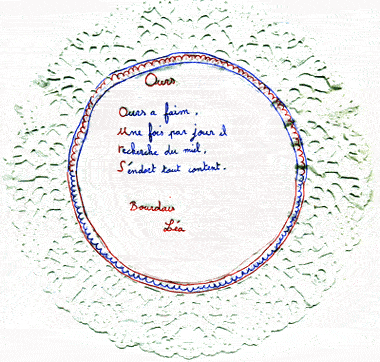 Ours
Ours a faim,
Une fois par jour il
recherche du miel,
S'endort tout content.
Bourdais
Léa